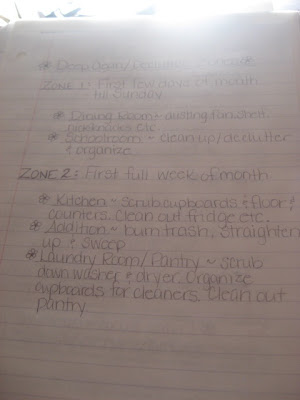 * Deep Clean/Declutter Zones *
ZONE 1: First few days of month
till Sunday
* Dining Room ~ dusting, fan, shelf,
nicknacks etc
* Schoolroom ~ clean up/declutter
& organize
ZONE 2: First full week of month
* Kitchen ~ scrub cupboards & floor &
counters. Clean out fridge etc.
* Addition ~ burn trash, straighten
up & sweep
* Laundry Room/Pantry ~ scrub
down washer & dryer. Organize
cupboards for cleaners. Clean out
pantry